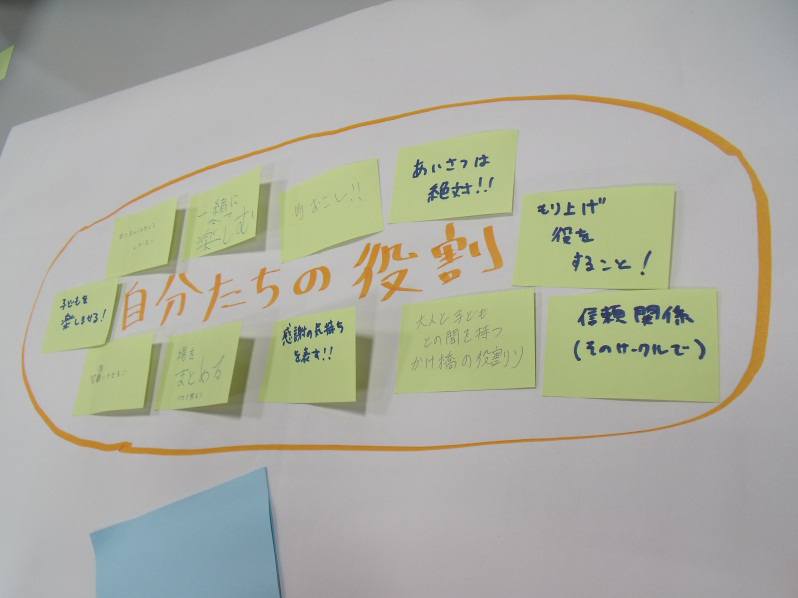 あいさつは
絶対!!
町おこし!!
一緒に
楽しむ
もり上げ
役を
すること!
自分たちの役割
子どもを
楽しませる!
信頼関係
(そのサークルで)
大人と子ども
との間を持つ
かけ橋の役割り
感謝の気持ち
を表す!!
場を
まとめる